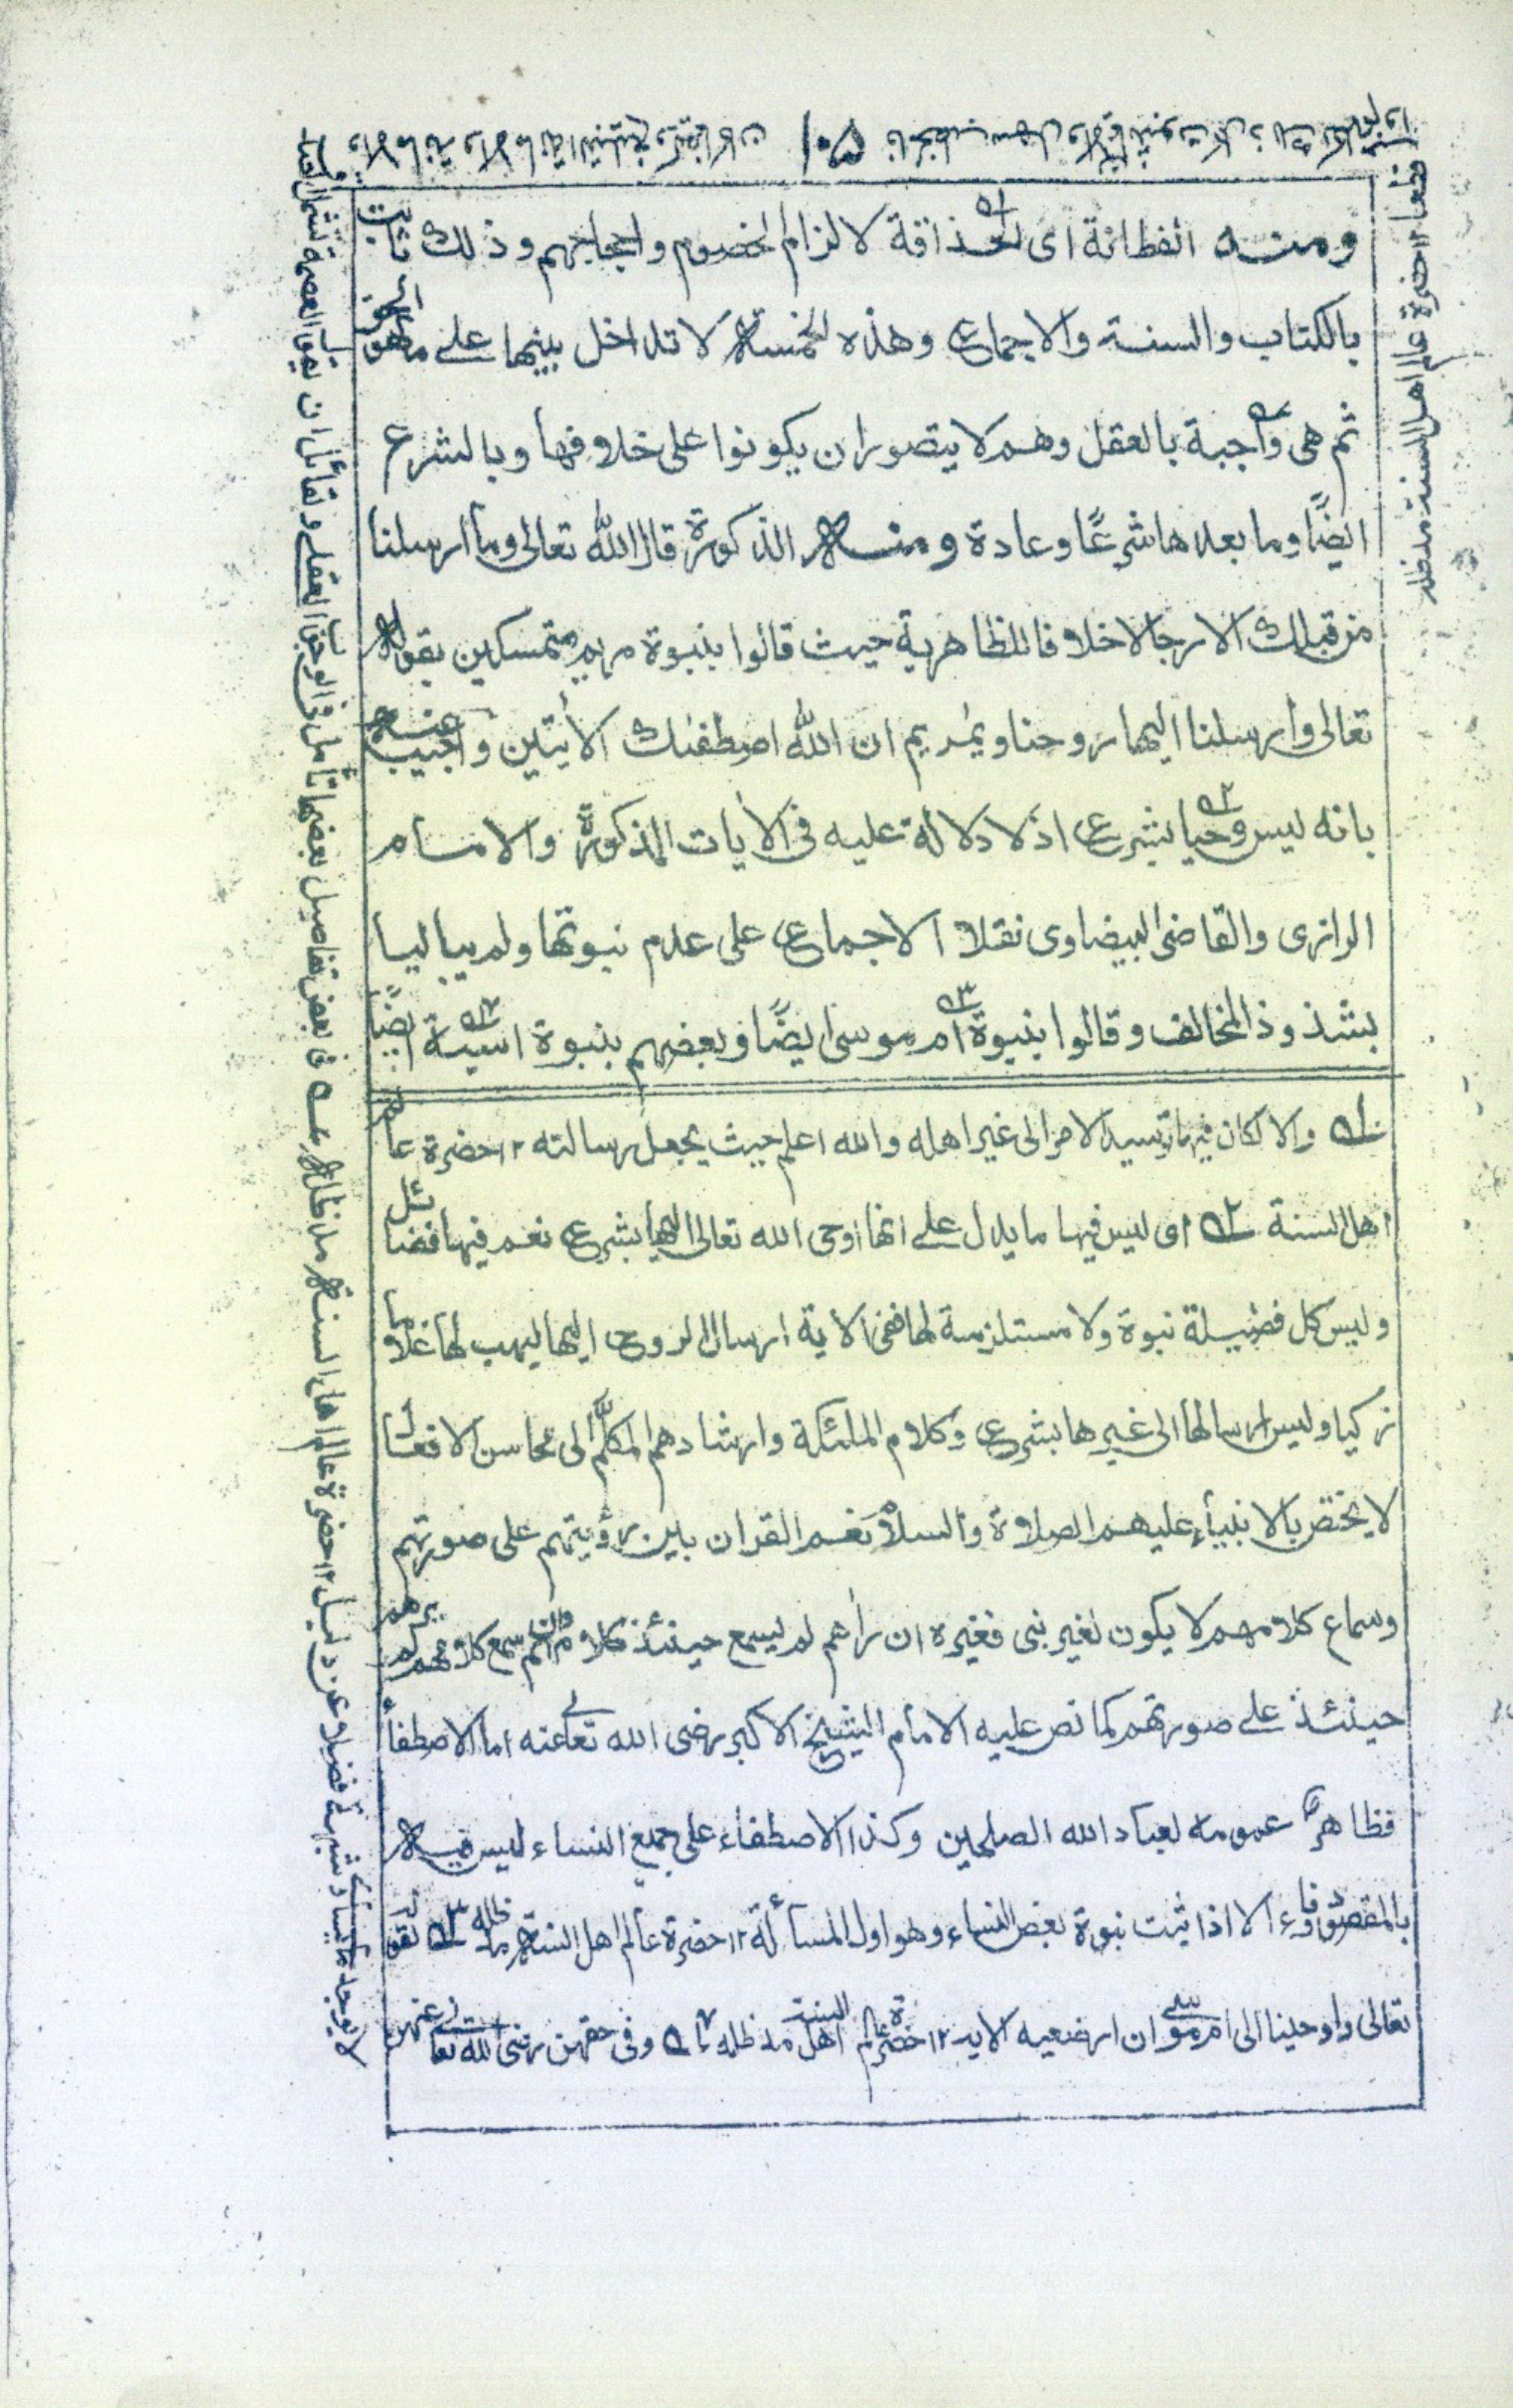 ومنه الفطانة اى الحذاقة لالزام الخصوم واحجاجهم وذلك ثابت
بالكتاب والسنة والاجماع وهذه الخمسة لا تداخل بينها على ما هو الحق
ثم هى واجبة بالعقل وهم لا يتصور ان يكونوا على خلافها وبالشرع
ايضًا وما بعدها شرعًا وعادة ومنه الذكورة قال الله تعالى وما ارسلنا
من قبلك الا رجالا خلافا للظاهرية حيث قالوا بنبوة مريم متمسكين بقوله
تعالى وارسلنا اليها روحنا ويمريم ان الله اصطفىك الأيتين واجيب عنه
بانه ليس وحيا بشرع اذ لا دلالة عليه فى الأيات المذكورة والامام
الرازى والقاضى البيضاوى نقلا الاجماع على عدم نبوتها ولم يباليا
بشذوذ المخالف وقالوا بنبوة ام موسى ايضًا وبعضهم بنبوة اسية ايضًا
ـه١ والا لكان فيها توسيد الامر الى غير اهله والله اعلم حيث يجعل رسالته ١٢ حضرة عالم
اهل السنة ـه٢ اى ليس فيها ما يدل على انها اوحى الله تعالى اليها بشرع نعم فيها فضائل
وليس كل فضيلة نبوة ولا مستلزمة لها ففى الاية ارسال الروح اليها ليهب لها غلاما
زكيا وليس ارسالها الى غيرها بشرع وكلام الملئكة وارشادهم المكلَّم الى محاسن الافعال
لا يختص بالانبياء عليهم الصلاة والسلام نعم القران بين رؤيتهم على صورتهم
وسماع كلامهم لا يكون لغير نبى فغيره ان رأهم لم يسمع حينئذ كلامهم وان سمع كلامهم لم يرهم
حينئذ على صورتهم كما نص عليه الامام الشيخ الاكبر رضى الله تعالى عنه اما الاصطفاء
فظاهر عمومه لعباد الله الصلحين وكذا الاصطفاء على جميع النساء ليس فيه
بالمقصود وفاء الا اذا ثبت نبوة بعض النساء وهو اول المسألة ١٢ حضرة عالم اهل السنة مد ظله ـه٣ لقوله
تعالى واوحينا الى ام موسى ان ارضعيه الاية ١٢ حضرة عالم اهل السنة مد ظله ـه٤ وفى حقهن رضى الله تعالى عنهن
قطعا ١٢ حضرة عالم اهل السنة مد ظله